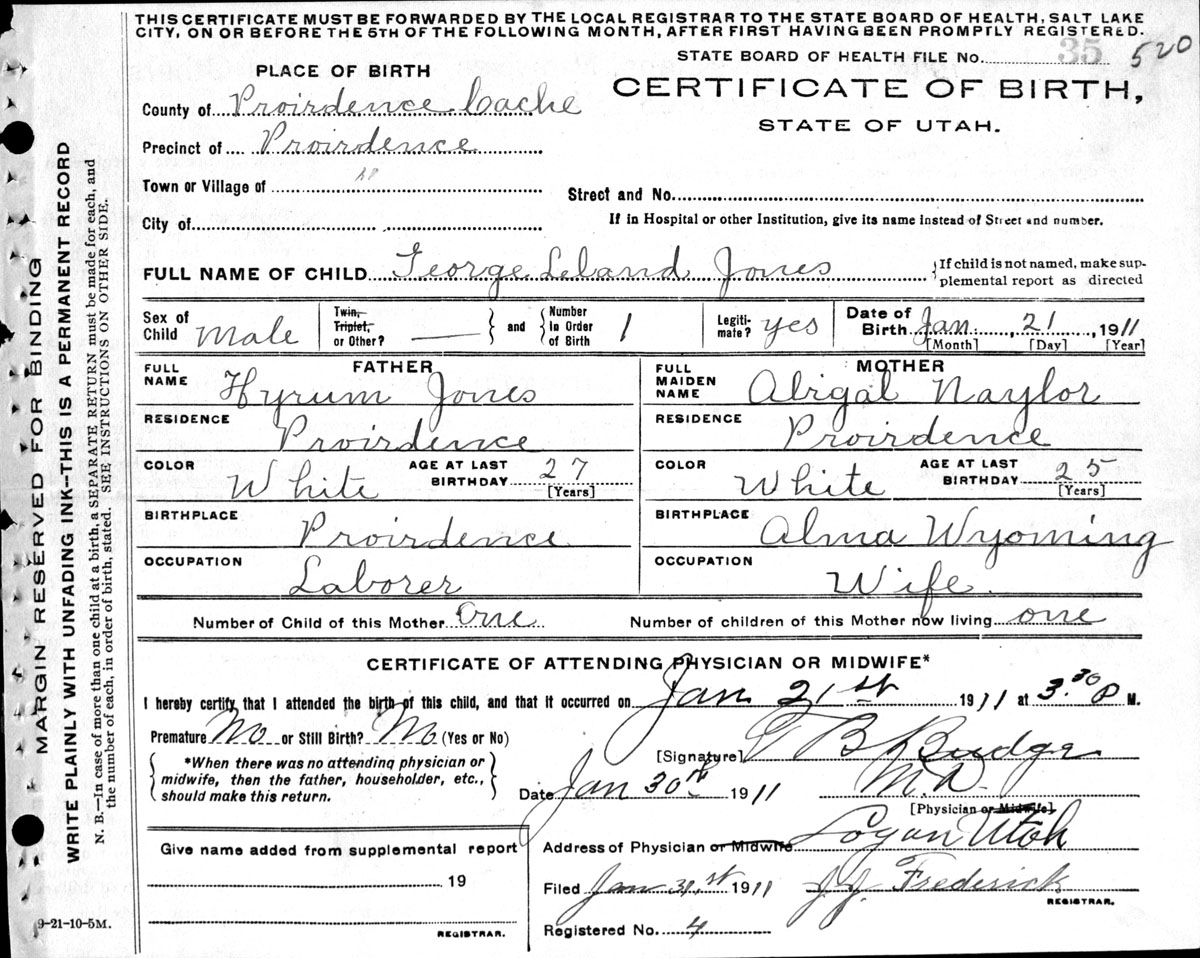 THIS CERTIFICATE MUST BE FORWARDED BY THE LOCAL REGISTRAR TO THE STATE BOARD OF HEALTH, SALT LAKE
CITY, ON OR BEFORE THE 5TH OF THE FOLLOWING MONTH, AFTER FIRST HAVING BEEN PROMPTLY REGISTERED.
STATE BOARD OF HEALTH FILE No. 35 520
PLACE OF BIRTH
CERTIFICATE OF BIRTH,
STATE OF UTAH.
County of Proirdence Cache
Precinct of Proirdence
Town or Village of
Street and No.
City of
If in Hospital or other Institution, give its name instead of Street and number.
FULL NAME OF CHILD George Leland Jones
{If child is not named, make sup-
plemental report as directed
Sex of Child Male
Twin, Triplet, or Other? —
and
Number In Order of Birth 1
Legiti- mate? yes
Date of Birth Jan 21, 1911
[Month] [Day] [Year]
FATHER
FULL NAME Hyrum Jones
RESIDENCE Proirdence
COLOR White AGE AT LAST BIRTHDAY 27
[Years]
BIRTHPLACE Proirdence
OCCUPATION Laborer
MOTHER
FULL MAIDEN NAME Abigal Naylor
RESIDENCE Proirdence
COLOR White AGE AT LAST BIRTHDAY 25
[Years]
BIRTHPLACE Alma Wyoming
OCCUPATION Wife.
Number of Child of this Mother One Number of children of this Mother now living one
CERTIFICATE OF ATTENDING PHYSICIAN OR MIDWIFE*
I hereby certify that I attended the birth of this child, and that it occurred on Jan 21st 1911 at 3.30 P M.
Premature No or Still Birth? No (Yes or No)
[Signature] T B Budge
*When there was no attending physician or
midwife, then the father, householder, etc.,
should make this return.
Date Jan 30th 1911 M.D.
[Physician or Midwife]
Give name added from supplemental report
19
REGISTRAR.
Address of Physician or Midwife Logan Utah
Filed Jan 31st 1911 J.J. Frederick
REGISTRAR.
Registered No. 4
9-21-10-5M.
MARGIN RESERVED FOR BINDING
WRITE PLAINLY WITH UNFADING INK--THIS IS A PERMANENT RECORD
N. B.—In case of more than one child at a birth, a SEPARATE RETURN must be made for each, and
the number of each, in order of birth, stated. SEE INSTRUCTIONS ON OTHER SIDE.